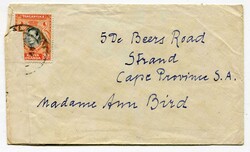 5 De Beers Road
Strand
Cape Province S.A.
Madame Ann Bird